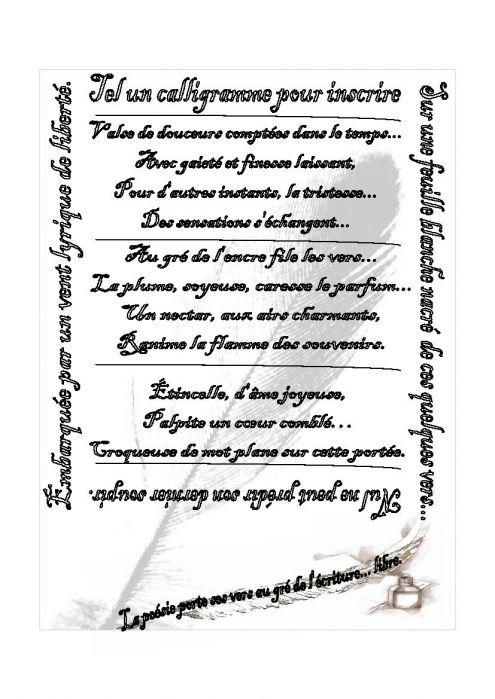 Tel un calligramme pour inscrire
Sur une feuille blanche nacré de ces quelques vers...
Valse de douceurs comptées dans le temps...
Avec gaieté et finesse laissant,
Pour d'autres instants, la tristesse...
Des sensations s'échangent...
Au gré de l'encre file les vers...
La plume, soyeuse, caresse le parfum...
Un nectar, aux airs charmants,
Ranime la flamme des souvenirs.
Étincelle, d'âme joyeuse,
Palpite un cœur comblé...
Croqueuse de mot plane sur cette portée.
Nul ne peut prédir son dernier soupir.
Embarquée par un vent lyrique de liberté.
La poésie porte ses vers au gré de l'écriture... libre.